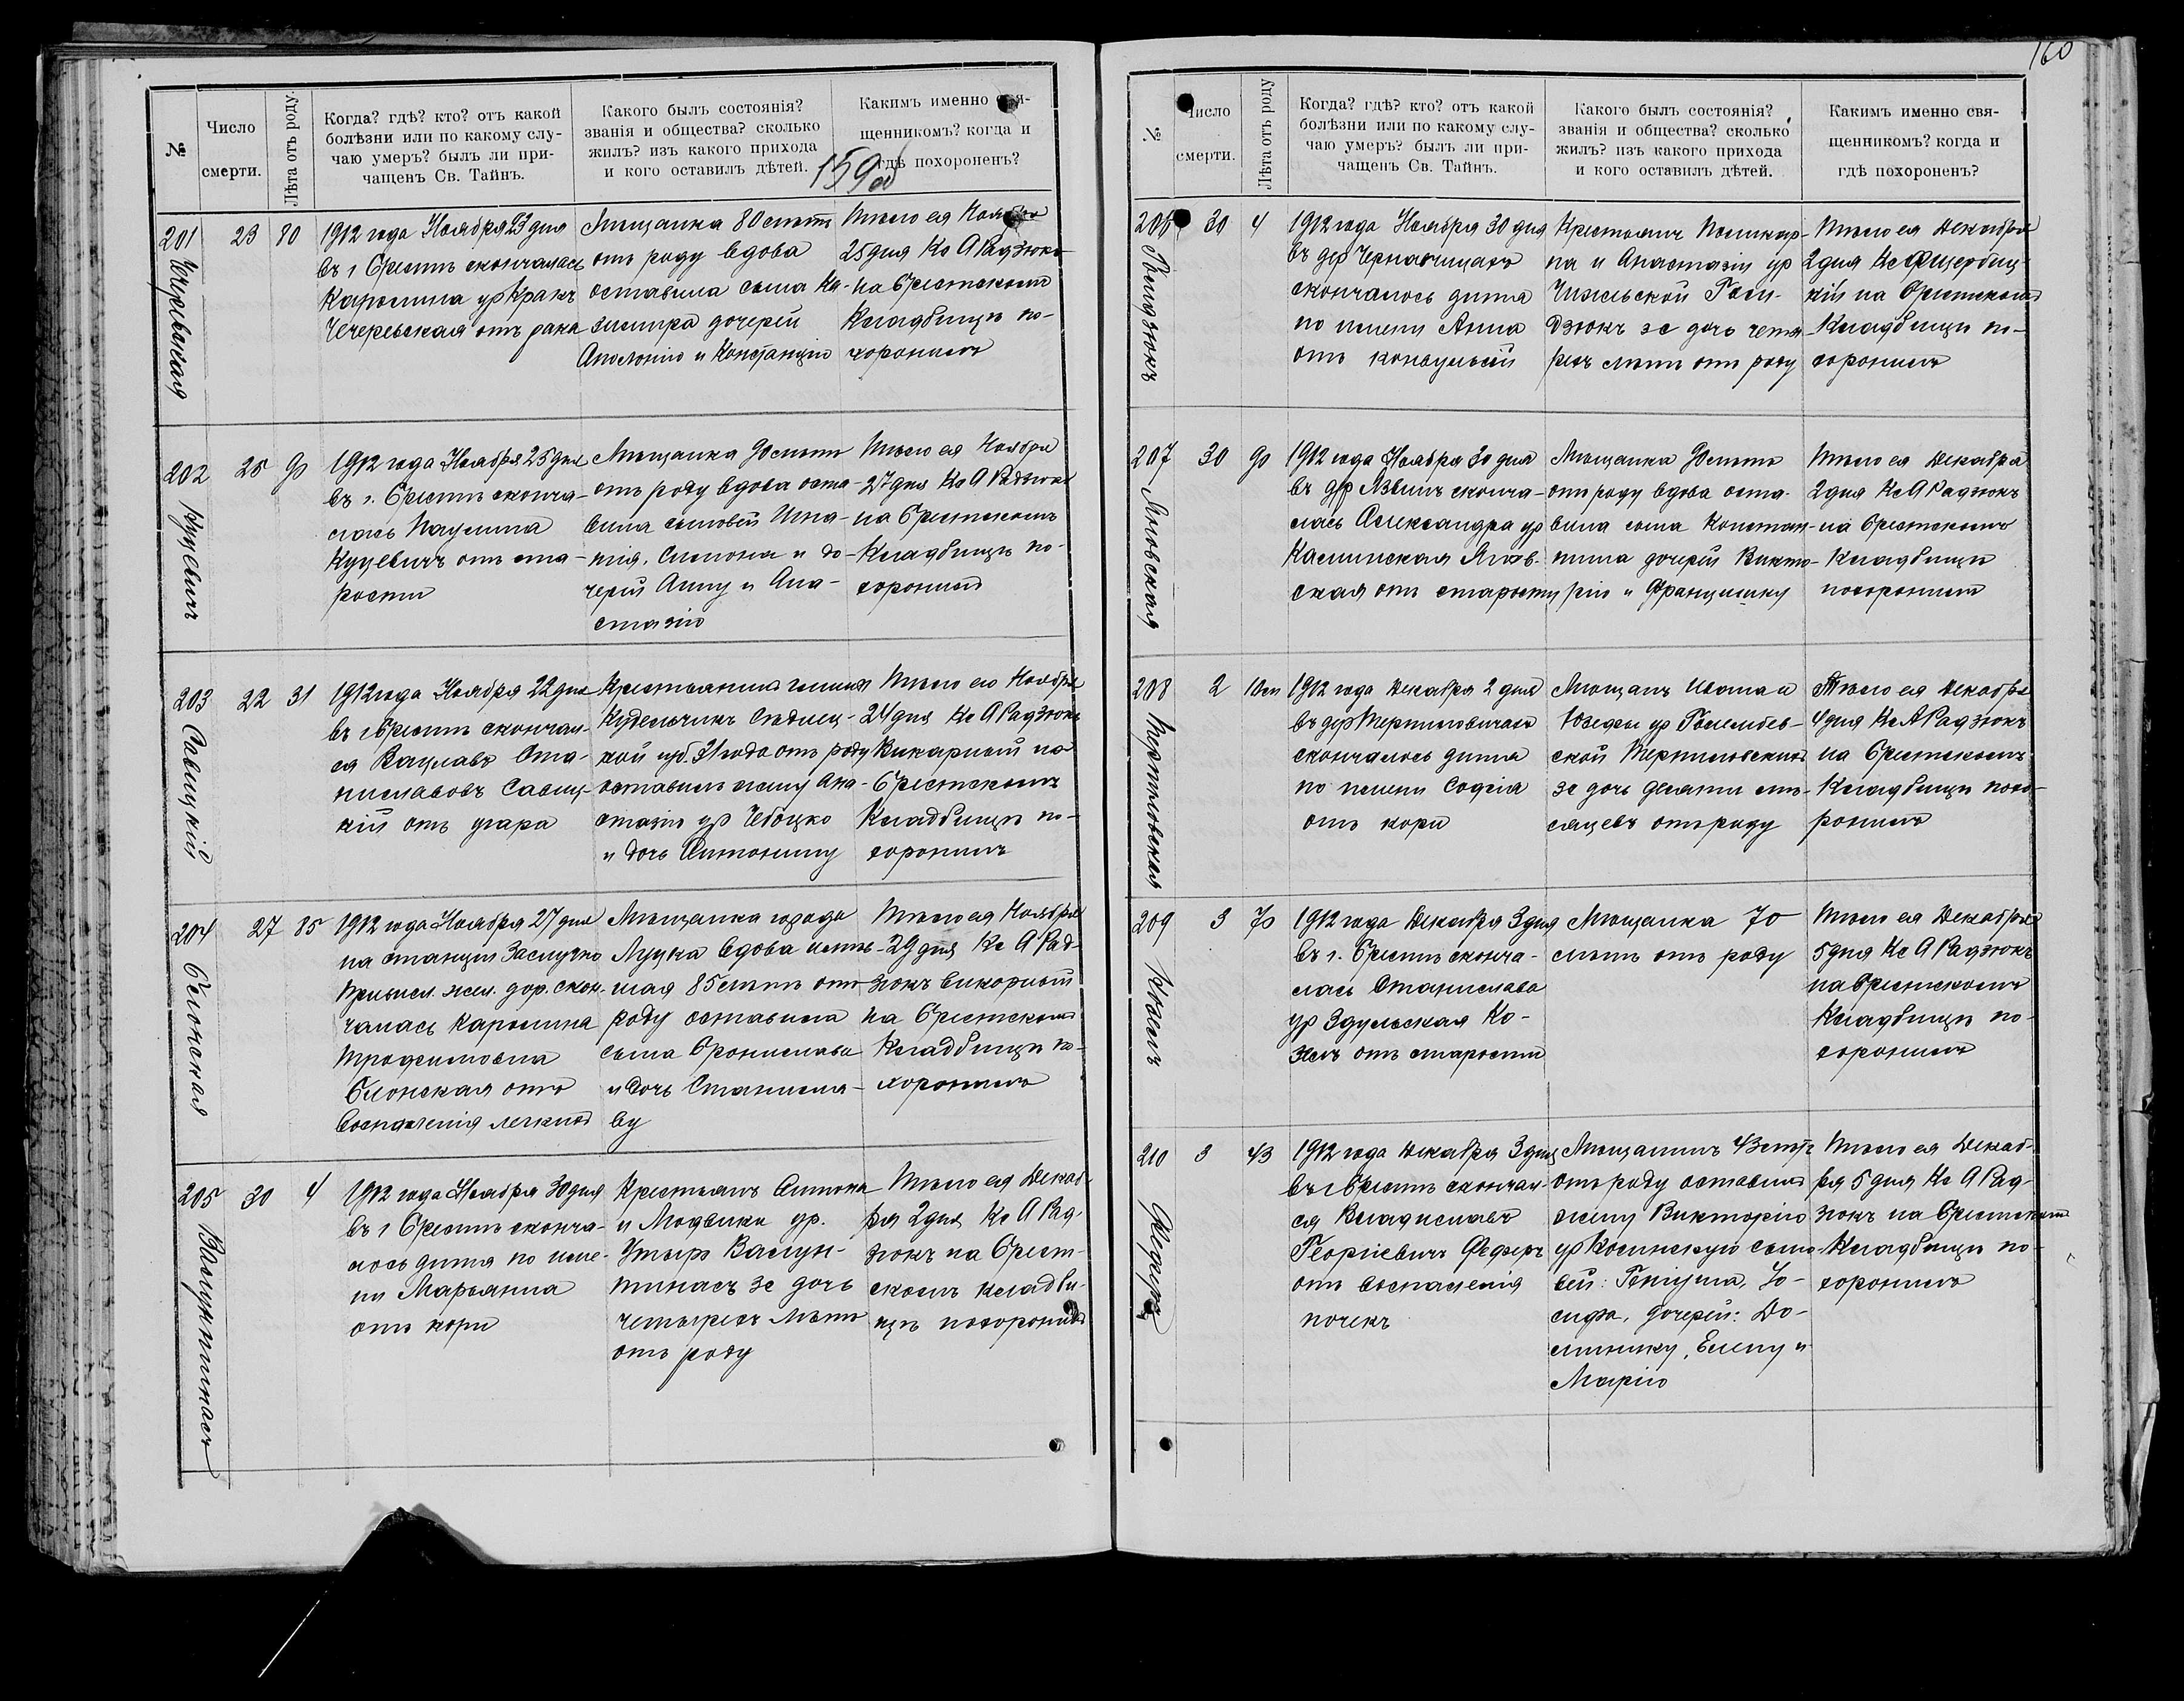 №
Число
смерти.
Лѣта отъ роду.
Когда? гдѣ? кто? отъ какой
болѣзни или по какому слу-
чаю умеръ? былъ ли при-
чащенъ Св. Тайнъ.
Какого былъ состоянія?
званія и общества? сколько
жилъ? изъ какого прихода
и кого оставилъ дѣтей.
Какимъ именно свя-
щенникомъ? когда и
гдѣ похороненъ?
159об
201
23
80
1912 года Ноября 23 дня
въ г Брестѣ скончалась
Каролина ур Кракъ
отъ рака
Мѣщанка 80 лѣтъ
отъ роду вдова
оставила сына Ка-
зимира дочерей
Аполонію и Констанцію
Тѣло ея Ноября
25 дня Кс А Радзюкъ
на Брестскомъ
Кладбищѣ по-
хоронилъ
202
Куцевичъ
25
90
1912 года Ноября 25 дня
въ г. Брестѣ сконча-
лась Паулина
Куцевичъ отъ ста-
рости
Мѣщанка 90 лѣтъ
отъ роду вдова оста-
вила сыновей Игна-
тія, Симона и до-
черей Анну и Ана-
стазію
Тѣло ея Ноября
27 дня Кс А Радзюкъ
на Брестскомъ
Кладбищѣ по-
хоронилъ
203
Савицкій
22
31
1912 года Ноября 22 дня
въ г Брестѣ скончал-
ся Вацлавъ Ста-
ниславовъ Савиц-
кій отъ угара
Крестьянинъ гмины
Кудельчинъ Сѣдлец-
кой губ. 31 года отъ роду
оставилъ жену Ана-
стазію ур Чебоцко
и дочь Антонину
Тѣло его Ноября
24 дня Кс А Радзюкъ
Викарный на
Брестскомъ
Кладбищѣ по-
хоронилъ
204
Блонская
27
85
1912 года Ноября 27 дня
на станціи Заслучно
Привисл. жел. дор. скон-
чалась Каролина
Трофимовна
Блонская отъ
воспаленія легкихъ
Мѣщанка города
Луцка вдова
85 лѣтъ отъ
роду оставила
сына Бронислава
и дочь Станисла-
ву
Тѣло ея Ноября
29 дня Кс А Рад-
зюкъ викарный
на Брестскомъ
Кладбищѣ по-
хоронилъ
205
30
4
1912 года Ноября 30 дня
въ г Брестѣ сконча-
лось дитя по име-
ни Марьянна
отъ кори
Крестьянъ Антона
и Людвики ур.
зс дочь
четырехъ лѣтъ
отъ роду
Тѣло ея Декаб-
ря 2 дня Кс А Рад-
зюкъ на Брест-
скомъ кладби-
щѣ похоронилъ
160
№
Число
смерти.
Лѣта отъ роду
Когда? гдѣ? кто? отъ какой
болѣзни или по какому слу-
чаю умеръ? былъ ли при-
чащенъ Св. Тайнъ.
Какого былъ состоянія?
званія и общества? сколько
жилъ? изъ какого прихода
и кого оставилъ дѣтей.
Какимъ именно свя-
щенникомъ? когда и
гдѣ похороненъ?
206
30
4
1912 года Ноября 30 дня
въ дер Чернавчицахъ
скончалось дитя
по имени Анна
отъ конвульсій
Крестьянъ Поликар-
па и Анастазіи ур
зс дочь четы-
рехъ лѣтъ отъ роду
Тѣло ея Декабря
2 дня Кс Ф Щербиц-
кій на Брестскомъ
Кладбищѣ по-
хоронилъ
207
30
90
1912 года Ноября 30 дня
въ дер сконча-
лась Александра ур
Калинская
ская отъ старости
Мѣщанка 90 лѣтъ
отъ роду вдова оста-
вила сына Констан-
тина дочерей Викто-
рію и Францишку
Тѣло ея Декабря
2 дня Кс А Радзюкъ
на Брестскомъ
Кладбищѣ
похоронилъ
208
Тертиловская
2
10 м
1912 года Декабря 2 дня
въ дер Тертиловичахъ
скончалось дитя
по имени Софія
отъ кори
Мѣщанъ
Юзефы ур
ской Тертиловскихъ
зс дочь десяти мѣ-
сяцевъ отъ роду
Тѣло ея Декабря
4 дня Кс А Радзюкъ
на Брестскомъ
Кладбищѣ похо-
ронилъ
209
3
70
1912 года Декабря 3 дня
въ г. Брестѣ сконча-
лась Станислава
ур Здульская Ко-
отъ старости
Мѣщанка 70
лѣтъ отъ роду
Тѣло ея Декабря
5 дня Кс А Радзюкъ
на Брестскомъ
Кладбищѣ по-
хоронилъ
210
3
43
1912 года Декабря 3 дня
въ г Брестѣ скончал-
ся Владиславъ
Георгіевичъ
отъ воспаленія
почекъ
Мѣщанинъ 43 лѣтъ
отъ роду оставилъ
жену Викторію
ур Косинскую сыно-
вей: Генриха, Іо-
сифа, дочерей: До-
минику, Елену и
Марію
Тѣло ея Декаб-
ря 5 дня Кс А Рад-
зюкъ на Брестскомъ
Кладбищѣ по-
хоронилъ